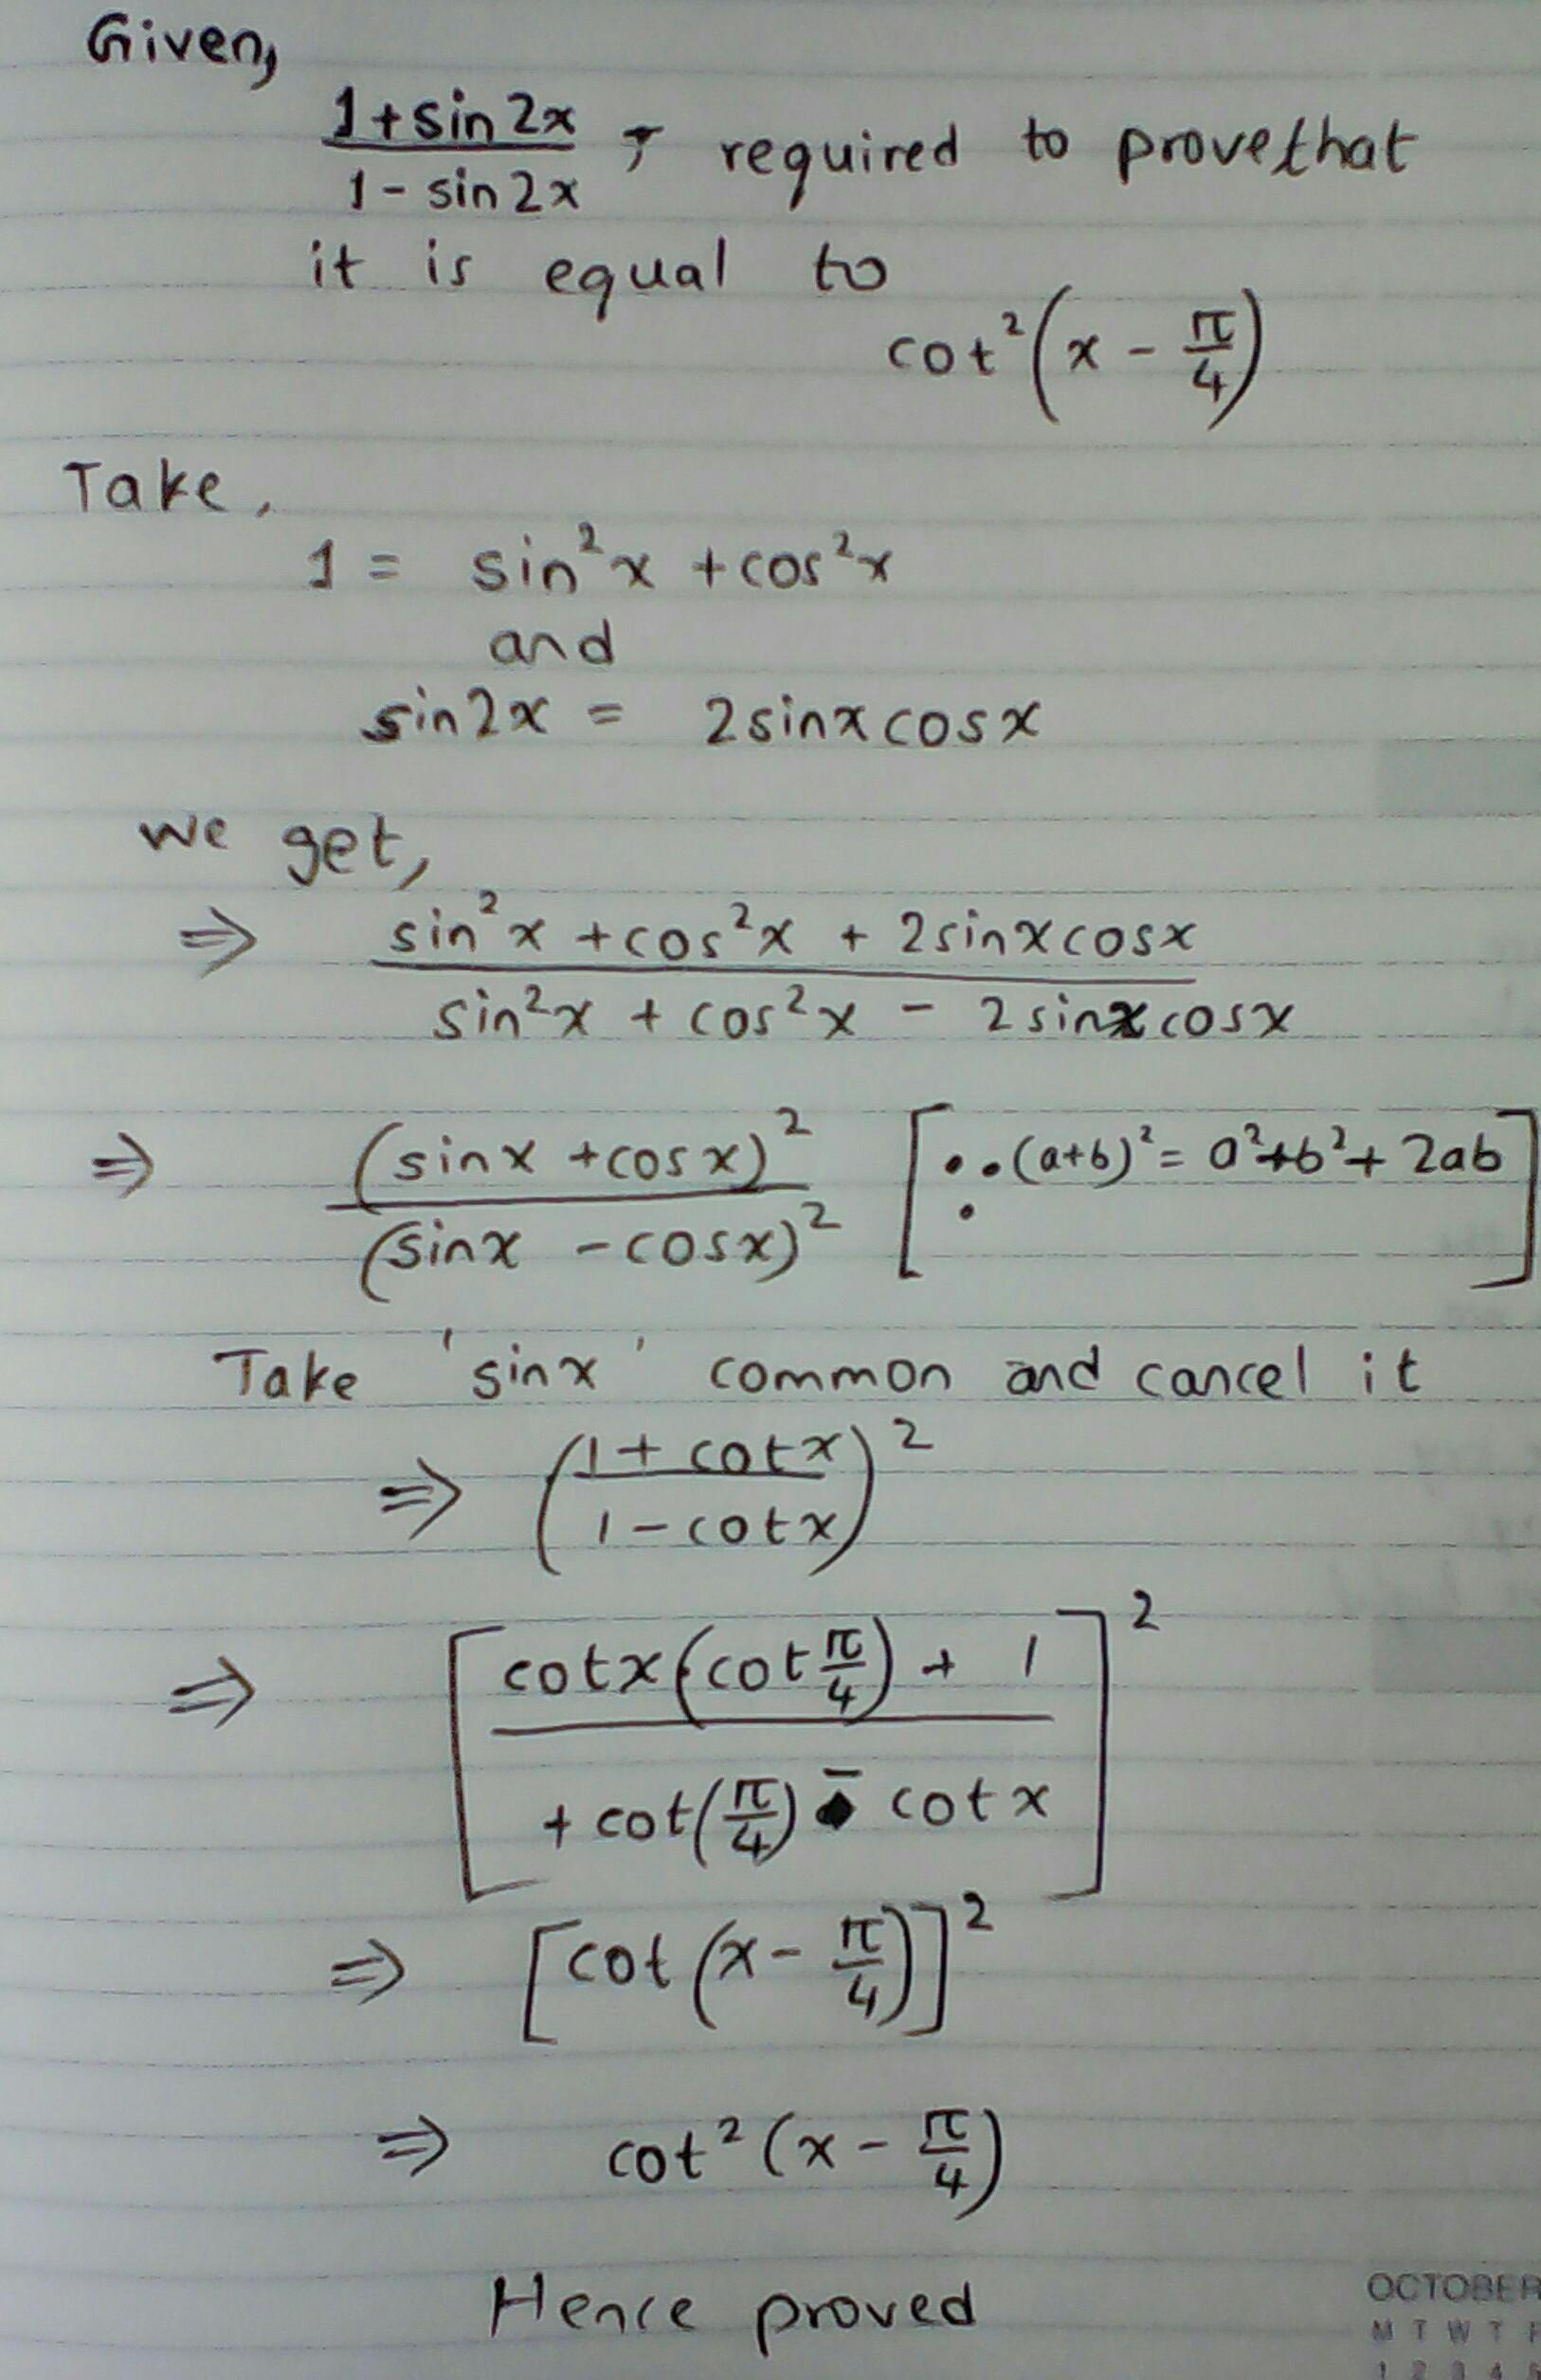 Given,
1+sin 2x / 1-sin 2x , required to prove that
it is equal to
cot²(x - π/4)
Take,
1 = sin²x + cos²x
and
sin2x = 2sinx cosx
we get,
⇒ sin²x + cos²x + 2sinx cosx / sin²x + cos²x - 2sinx cosx
⇒ (sinx + cosx)² / (sinx - cosx)² [∵ (a+b)² = a²+b²+2ab]
Take 'sinx' common and cancel it
⇒ (1 + cotx / 1 - cotx)²
⇒ [cotx(cot π/4) + 1 / + cot(π/4) - cotx]²
⇒ [cot(x - π/4)]²
⇒ cot²(x - π/4)
Hence proved
OCTOBER
M T W T F
1 2 3 4 5